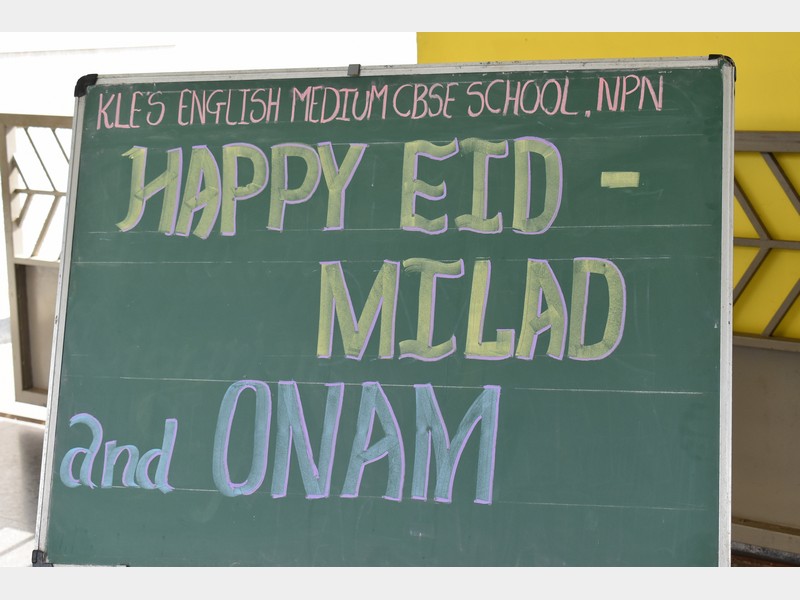 KLE'S ENGLISH MEDIUM CBSE SCHOOL, NPN
HAPPY EID -
MILAD
and ONAM